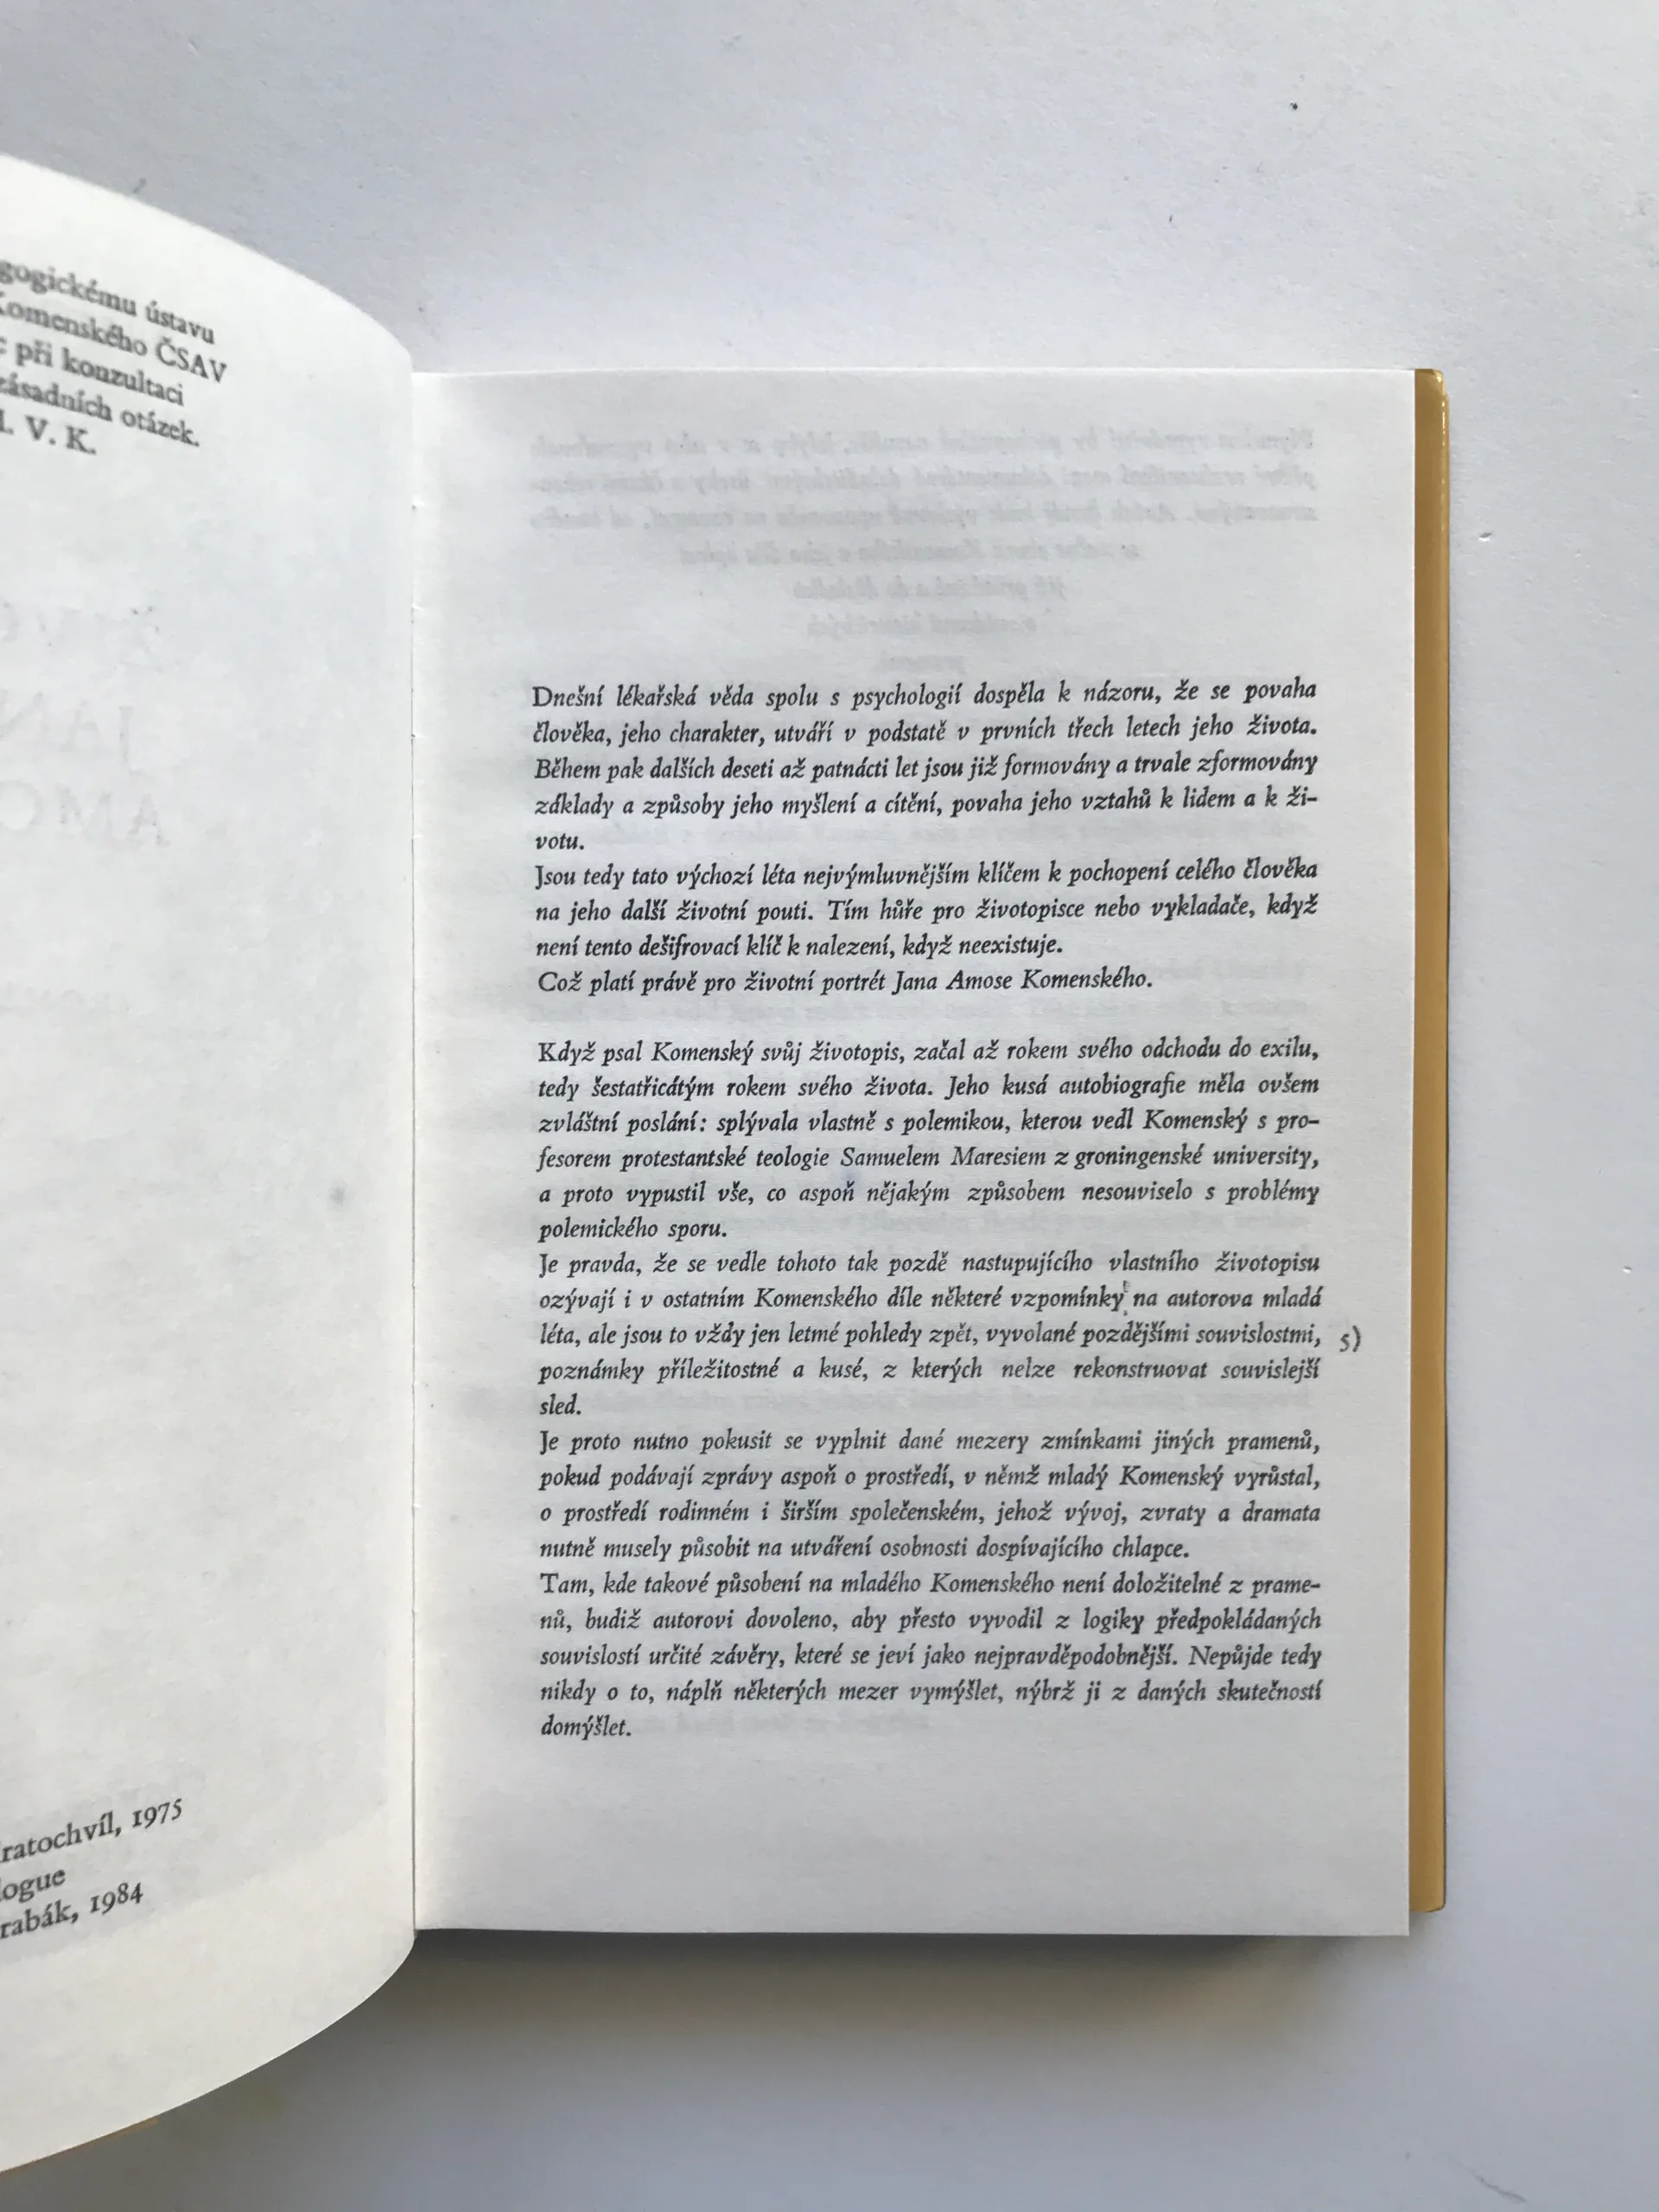 gogickému ústavu
Komenského ČSAV
při konzultaci
zásadních otázek.
V. K.
ratochvíl, 1975
logue
rabák, 1984
Dnešní lékařská věda spolu s psychologií dospěla k názoru, že se povaha
člověka, jeho charakter, utváří v podstatě v prvních třech letech jeho života.
Během pak dalších deseti až patnácti let jsou již formovány a trvale zformovány
základy a způsoby jeho myšlení a cítění, povaha jeho vztahů k lidem a k ži-
votu.
Jsou tedy tato výchozí léta nejvýmluvnějším klíčem k pochopení celého člověka
na jeho další životní pouti. Tím hůře pro životopisce nebo vykladače, když
není tento dešifrovací klíč k nalezení, když neexistuje.
Což platí právě pro životní portrét Jana Amose Komenského.
Když psal Komenský svůj životopis, začal až rokem svého odchodu do exilu,
tedy šestatřicátým rokem svého života. Jeho kusá autobiografie měla ovšem
zvláštní poslání: splývala vlastně s polemikou, kterou vedl Komenský s pro-
fesorem protestantské teologie Samuelem Maresiem z groningenské university,
a proto vypustil vše, co aspoň nějakým způsobem nesouviselo s problémy
polemického sporu.
Je pravda, že se vedle tohoto tak pozdě nastupujícího vlastního životopisu
ozývají i v ostatním Komenského díle některé vzpomínky na autorova mladá
léta, ale jsou to vždy jen letmé pohledy zpět, vyvolané pozdějšími souvislostmi, 5)
poznámky příležitostné a kusé, z kterých nelze rekonstruovat souvislejší
sled.
Je proto nutno pokusit se vyplnit dané mezery zmínkami jiných pramenů,
pokud podávají zprávy aspoň o prostředí, v němž mladý Komenský vyrůstal,
o prostředí rodinném i širším společenském, jehož vývoj, zvraty a dramata
nutně musely působit na utváření osobnosti dospívajícího chlapce.
Tam, kde takové působení na mladého Komenského není doložitelné z prame-
nů, budiž autorovi dovoleno, aby přesto vyvodil z logiky předpokládaných
souvislostí určité závěry, které se jeví jako nejpravděpodobnější. Nepůjde tedy
nikdy o to, náplň některých mezer vymýšlet, nýbrž ji z daných skutečností
domýšlet.